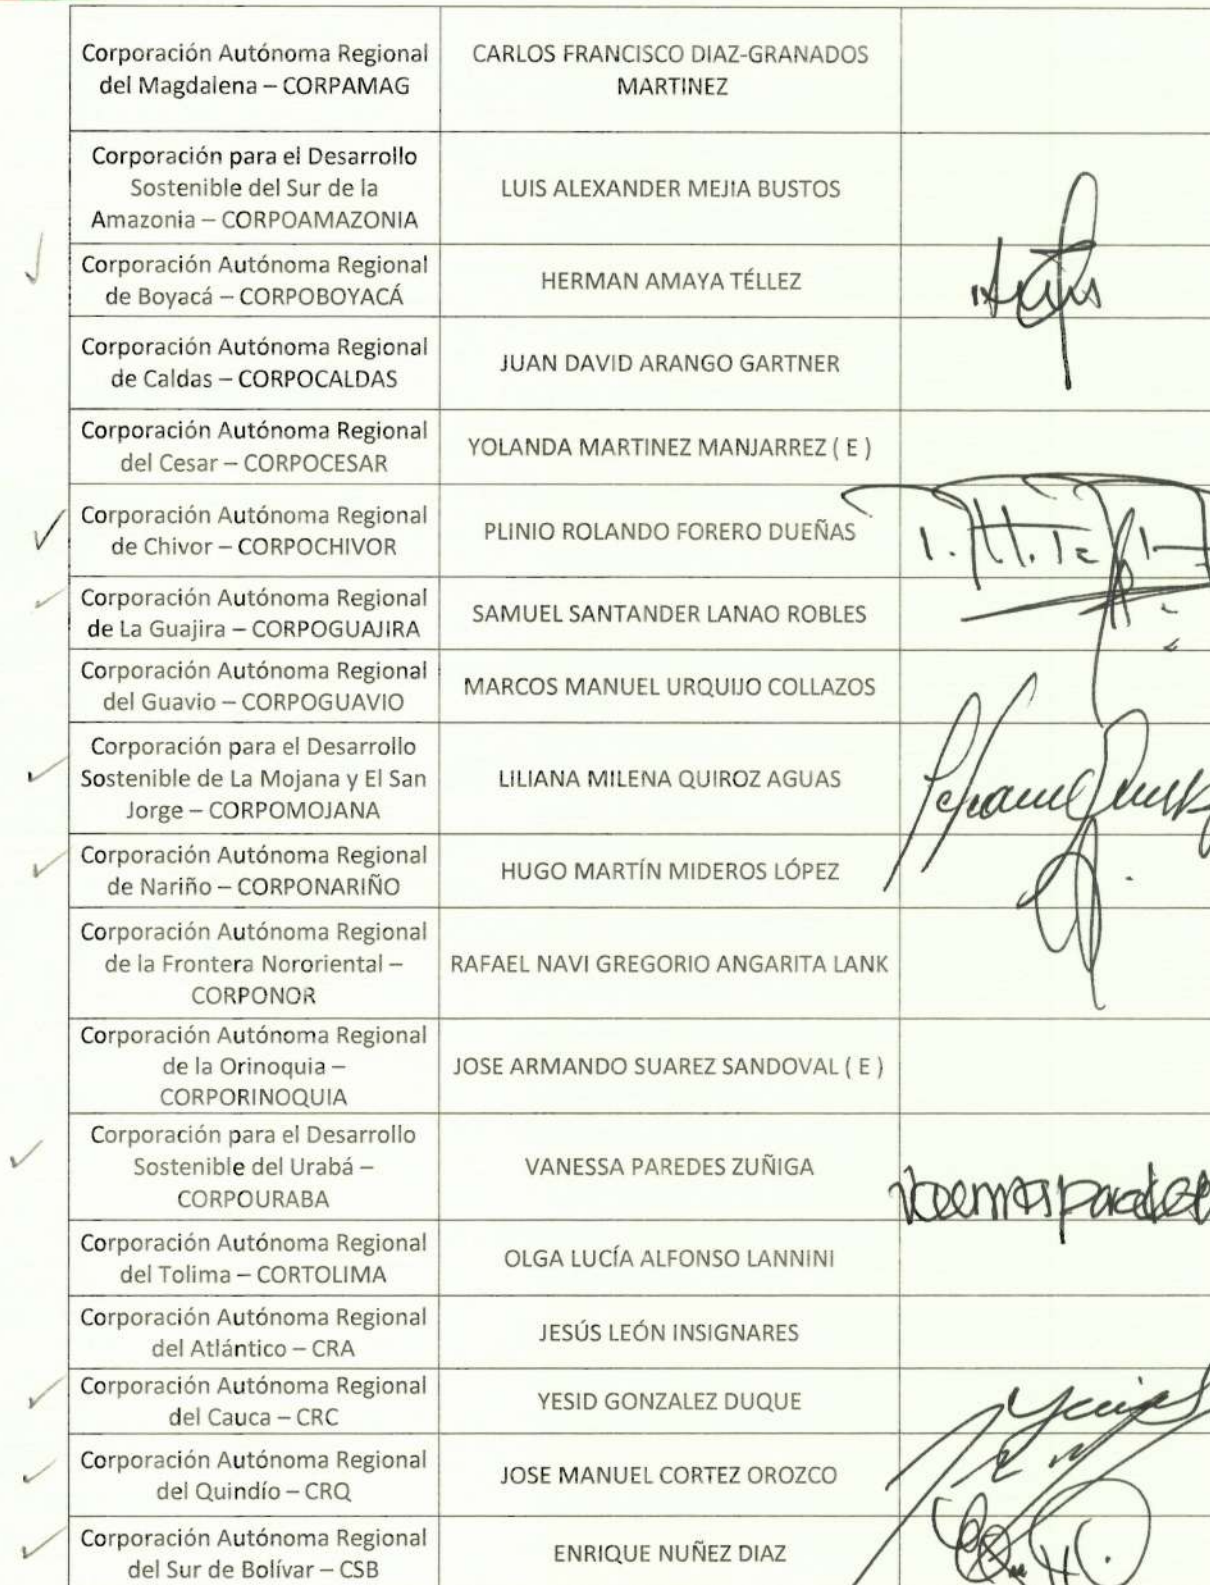 Corporación Autónoma Regional
del Magdalena – CORPAMAG
CARLOS FRANCISCO DIAZ-GRANADOS
MARTINEZ
Corporación para el Desarrollo
Sostenible del Sur de la
Amazonia – CORPOAMAZONIA
LUIS ALEXANDER MEJIA BUSTOS
Corporación Autónoma Regional
de Boyacá – CORPOBOYACÁ
HERMAN AMAYA TÉLLEZ
Corporación Autónoma Regional
de Caldas – CORPOCALDAS
JUAN DAVID ARANGO GARTNER
Corporación Autónoma Regional
del Cesar – CORPOCESAR
YOLANDA MARTINEZ MANJARREZ ( E )
Corporación Autónoma Regional
de Chivor – CORPOCHIVOR
PLINIO ROLANDO FORERO DUEÑAS
Corporación Autónoma Regional
de La Guajira – CORPOGUAJIRA
SAMUEL SANTANDER LANAO ROBLES
Corporación Autónoma Regional
del Guavio – CORPOGUAVIO
MARCOS MANUEL URQUIJO COLLAZOS
Corporación para el Desarrollo
Sostenible de La Mojana y El San
Jorge – CORPOMOJANA
LILIANA MILENA QUIROZ AGUAS
Corporación Autónoma Regional
de Nariño – CORPONARIÑO
HUGO MARTÍN MIDEROS LÓPEZ
Corporación Autónoma Regional
de la Frontera Nororiental –
CORPONOR
RAFAEL NAVI GREGORIO ANGARITA LANK
Corporación Autónoma Regional
de la Orinoquia –
CORPORINOQUIA
JOSE ARMANDO SUAREZ SANDOVAL ( E )
Corporación para el Desarrollo
Sostenible del Urabá –
CORPOURABA
VANESSA PAREDES ZUÑIGA
Corporación Autónoma Regional
del Tolima – CORTOLIMA
OLGA LUCÍA ALFONSO LANNINI
Corporación Autónoma Regional
del Atlántico – CRA
JESÚS LEÓN INSIGNARES
Corporación Autónoma Regional
del Cauca – CRC
YESID GONZALEZ DUQUE
Corporación Autónoma Regional
del Quindío – CRQ
JOSE MANUEL CORTEZ OROZCO
Corporación Autónoma Regional
del Sur de Bolívar – CSB
ENRIQUE NUÑEZ DIAZ